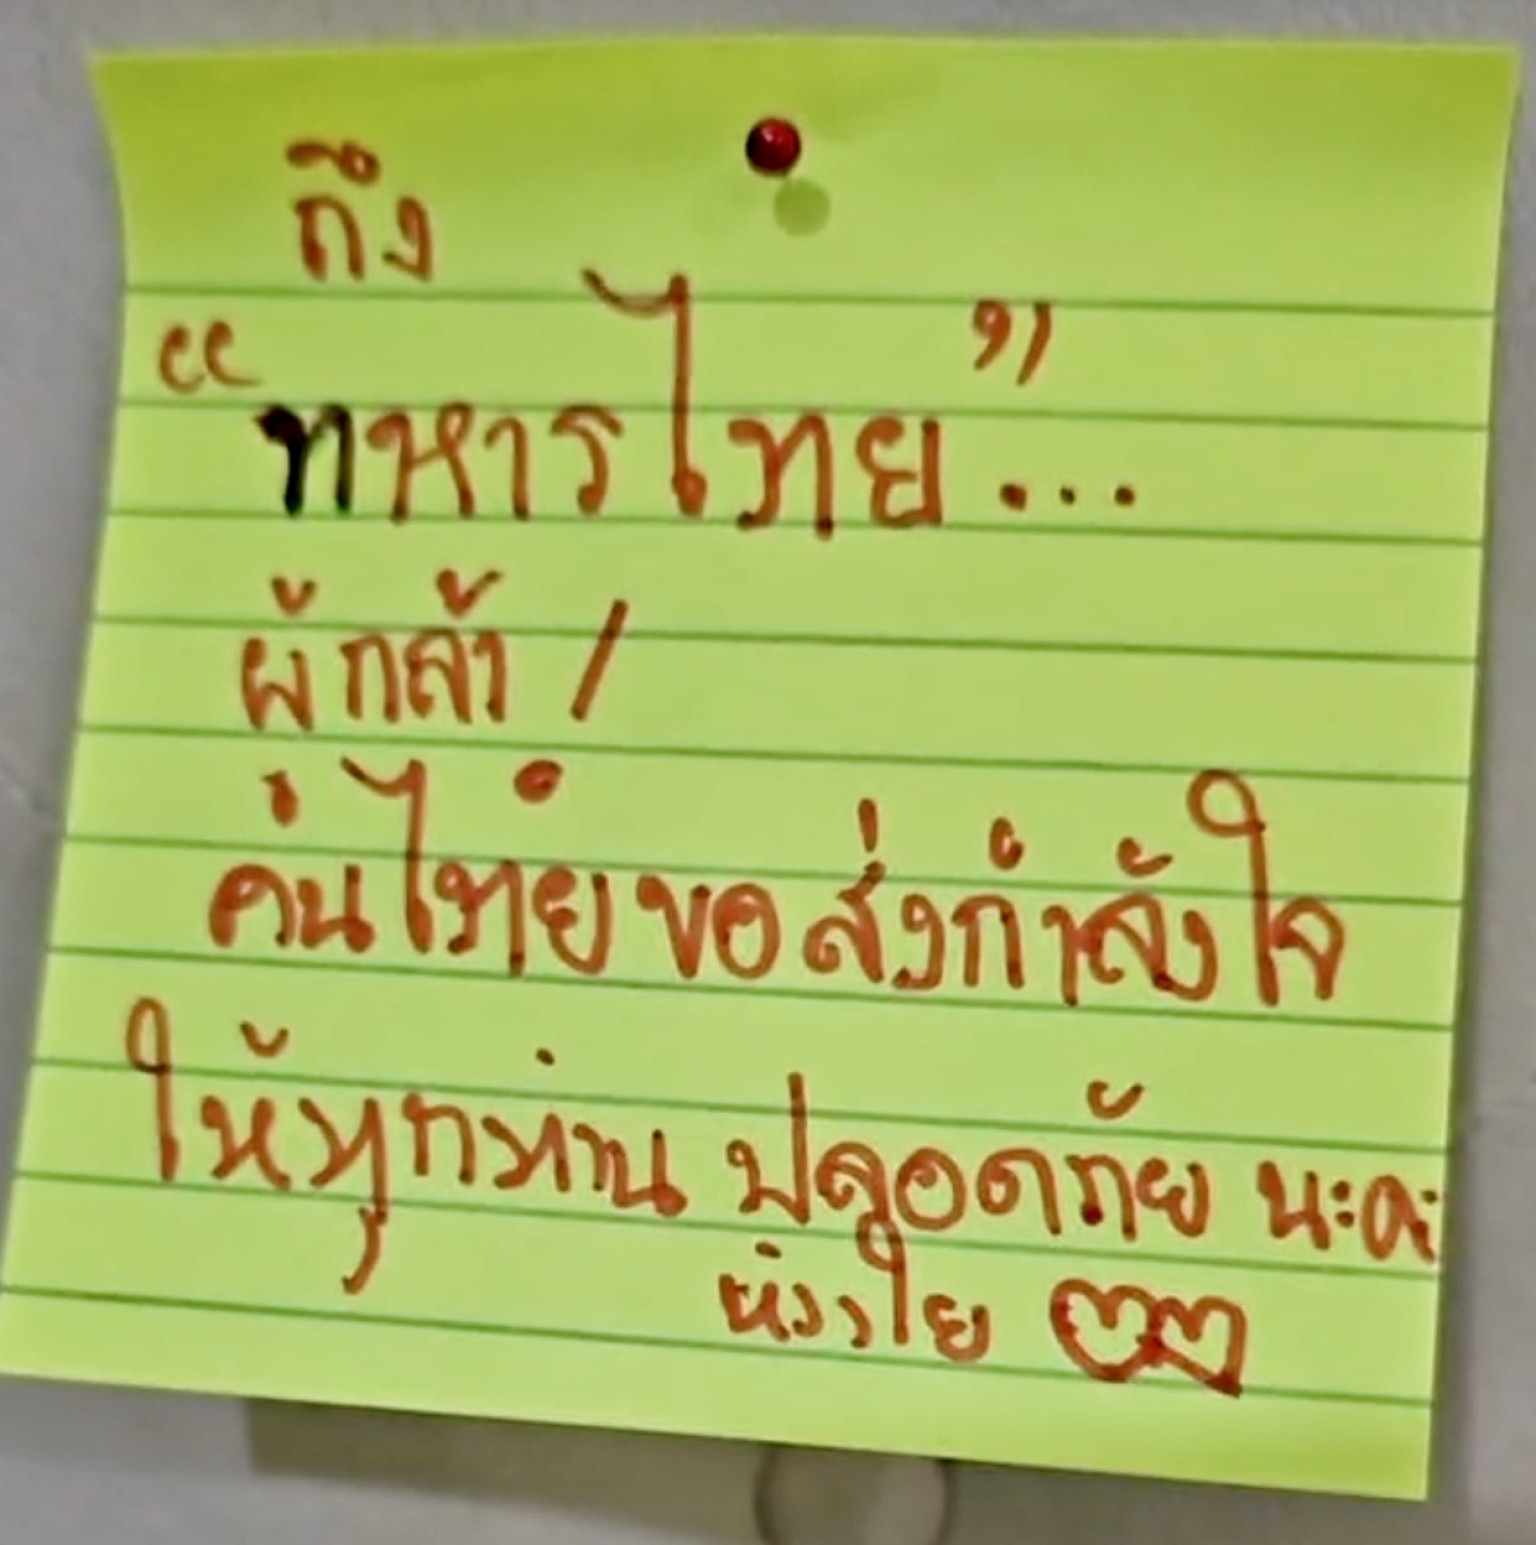 ถึง
“ทหารไทย”...
ผู้กล้า /
คนไทยขอส่งกำลังใจ
ให้ทุกท่าน ปลอดภัย นะคะ
ห่วงใย ♡♡